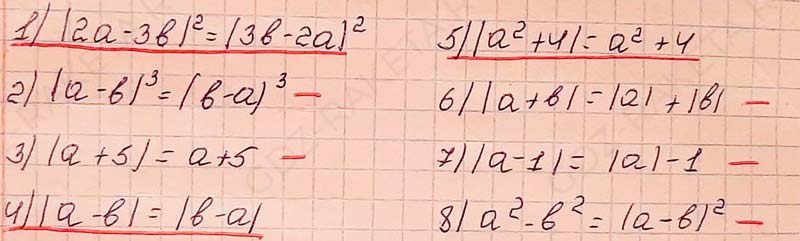 1) |2a-3в|² = |3в-2a|²
2) |a-в|³ = (в-a)³ –
3) |a+5| = a+5 –
4) |a-в| = |в-a|
5) |a²+4| = a²+4
6) |a+в| = |a| + |в| –
7) |a-1| = |a|-1 –
8) a²-в² = |a-в|² –